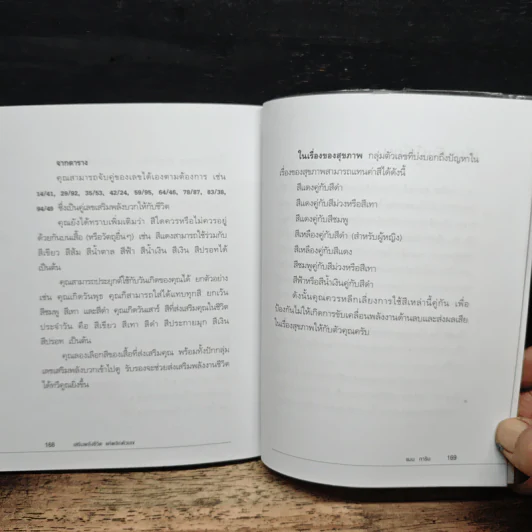 จากตาราง
คุณสามารถจับคู่ของเลขได้เองตามต้องการ เช่น
14/41, 29/92, 35/53, 42/24, 59/95, 64/46, 78/87, 83/38,
94/49 ซึ่งเป็นคู่เลขเสริมพลังบวกให้กับชีวิต
คุณยังได้ทราบเพิ่มเติมว่า สีใดควรหรือไม่ควรอยู่
ด้วยกันบนเสื้อ (หรือวัตถุอื่นๆ) เช่น สีแดงสามารถใช้ร่วมกับ
สีเขียว สีส้ม สีน้ำตาล สีฟ้า สีน้ำเงิน สีเงิน สีปรอทได้
เป็นต้น
คุณสามารถประยุกต์ใช้กับวันเกิดของคุณได้ ยกตัวอย่าง
เช่น คุณเกิดวันพุธ คุณก็สามารถใส่ได้แทบทุกสี ยกเว้น
สีชมพู สีเทา และสีดำ คุณเกิดวันเสาร์ สีที่ส่งเสริมคุณในชีวิต
ประจำวัน คือ สีเขียว สีเทา สีดำ สีประกายมุก สีเงิน
สีปรอท เป็นต้น
คุณลองเลือกสีของเสื้อที่ส่งเสริมคุณ พร้อมทั้งปักกลุ่ม
เลขเสริมพลังบวกเข้าไปดู รับรองจะช่วยส่งเสริมพลังงานชีวิต
ได้ทวีคูณยิ่งขึ้น
168
ในเรื่องของสุขภาพ กลุ่มตัวเลขที่บ่งบอกถึงปัญหาใน
เรื่องของสุขภาพสามารถแทนค่าสีได้ดังนี้
สีแดงคู่กับสีดำ
สีแดงคู่กับสีม่วงหรือสีเทา
สีแดงคู่กับสีชมพู
สีเหลืองคู่กับสีดำ (สำหรับผู้หญิง)
สีเหลืองคู่กับสีแดง
สีชมพูคู่กับสีม่วงหรือสีเทา
สีฟ้าหรือสีน้ำเงินคู่กับสีดำ
ดังนั้นคุณควรหลีกเลี่ยงการใช้สีเหล่านี้คู่กัน เพื่อ
ป้องกันไม่ให้เกิดการขับเคลื่อนพลังงานด้านลบและส่งผลเสีย
ในเรื่องสุขภาพให้กับตัวคุณครับ
169